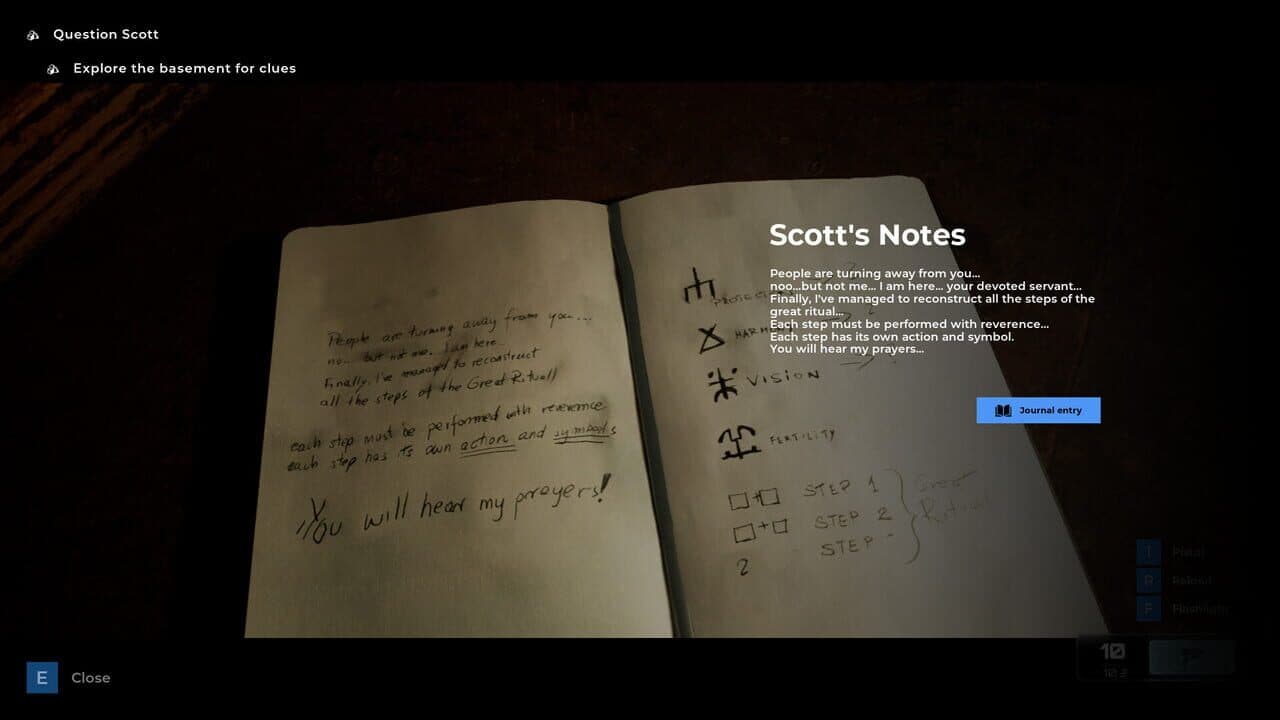 Question Scott
Explore the basement for clues
People are turning away from you...
no... but not me. I am here...
Finally, I've managed to reconstruct
all the steps of the Great Ritual!
each step must be performed with reverence
each step has its own action and symbols
You will hear my prayers!
HARM
VISION
FERTILITY
STEP 1
STEP 2
STEP
2
Great
Ritual
Scott's Notes
People are turning away from you...
noo...but not me... I am here... your devoted servant...
Finally, I've managed to reconstruct all the steps of the
great ritual...
Each step must be performed with reverence...
Each step has its own action and symbol.
You will hear my prayers...
Journal entry
R Reload
F Flashlight
10
E Close